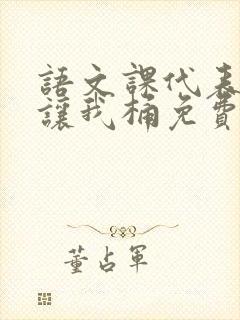 語文課代表
讓我桶免費
董占軍